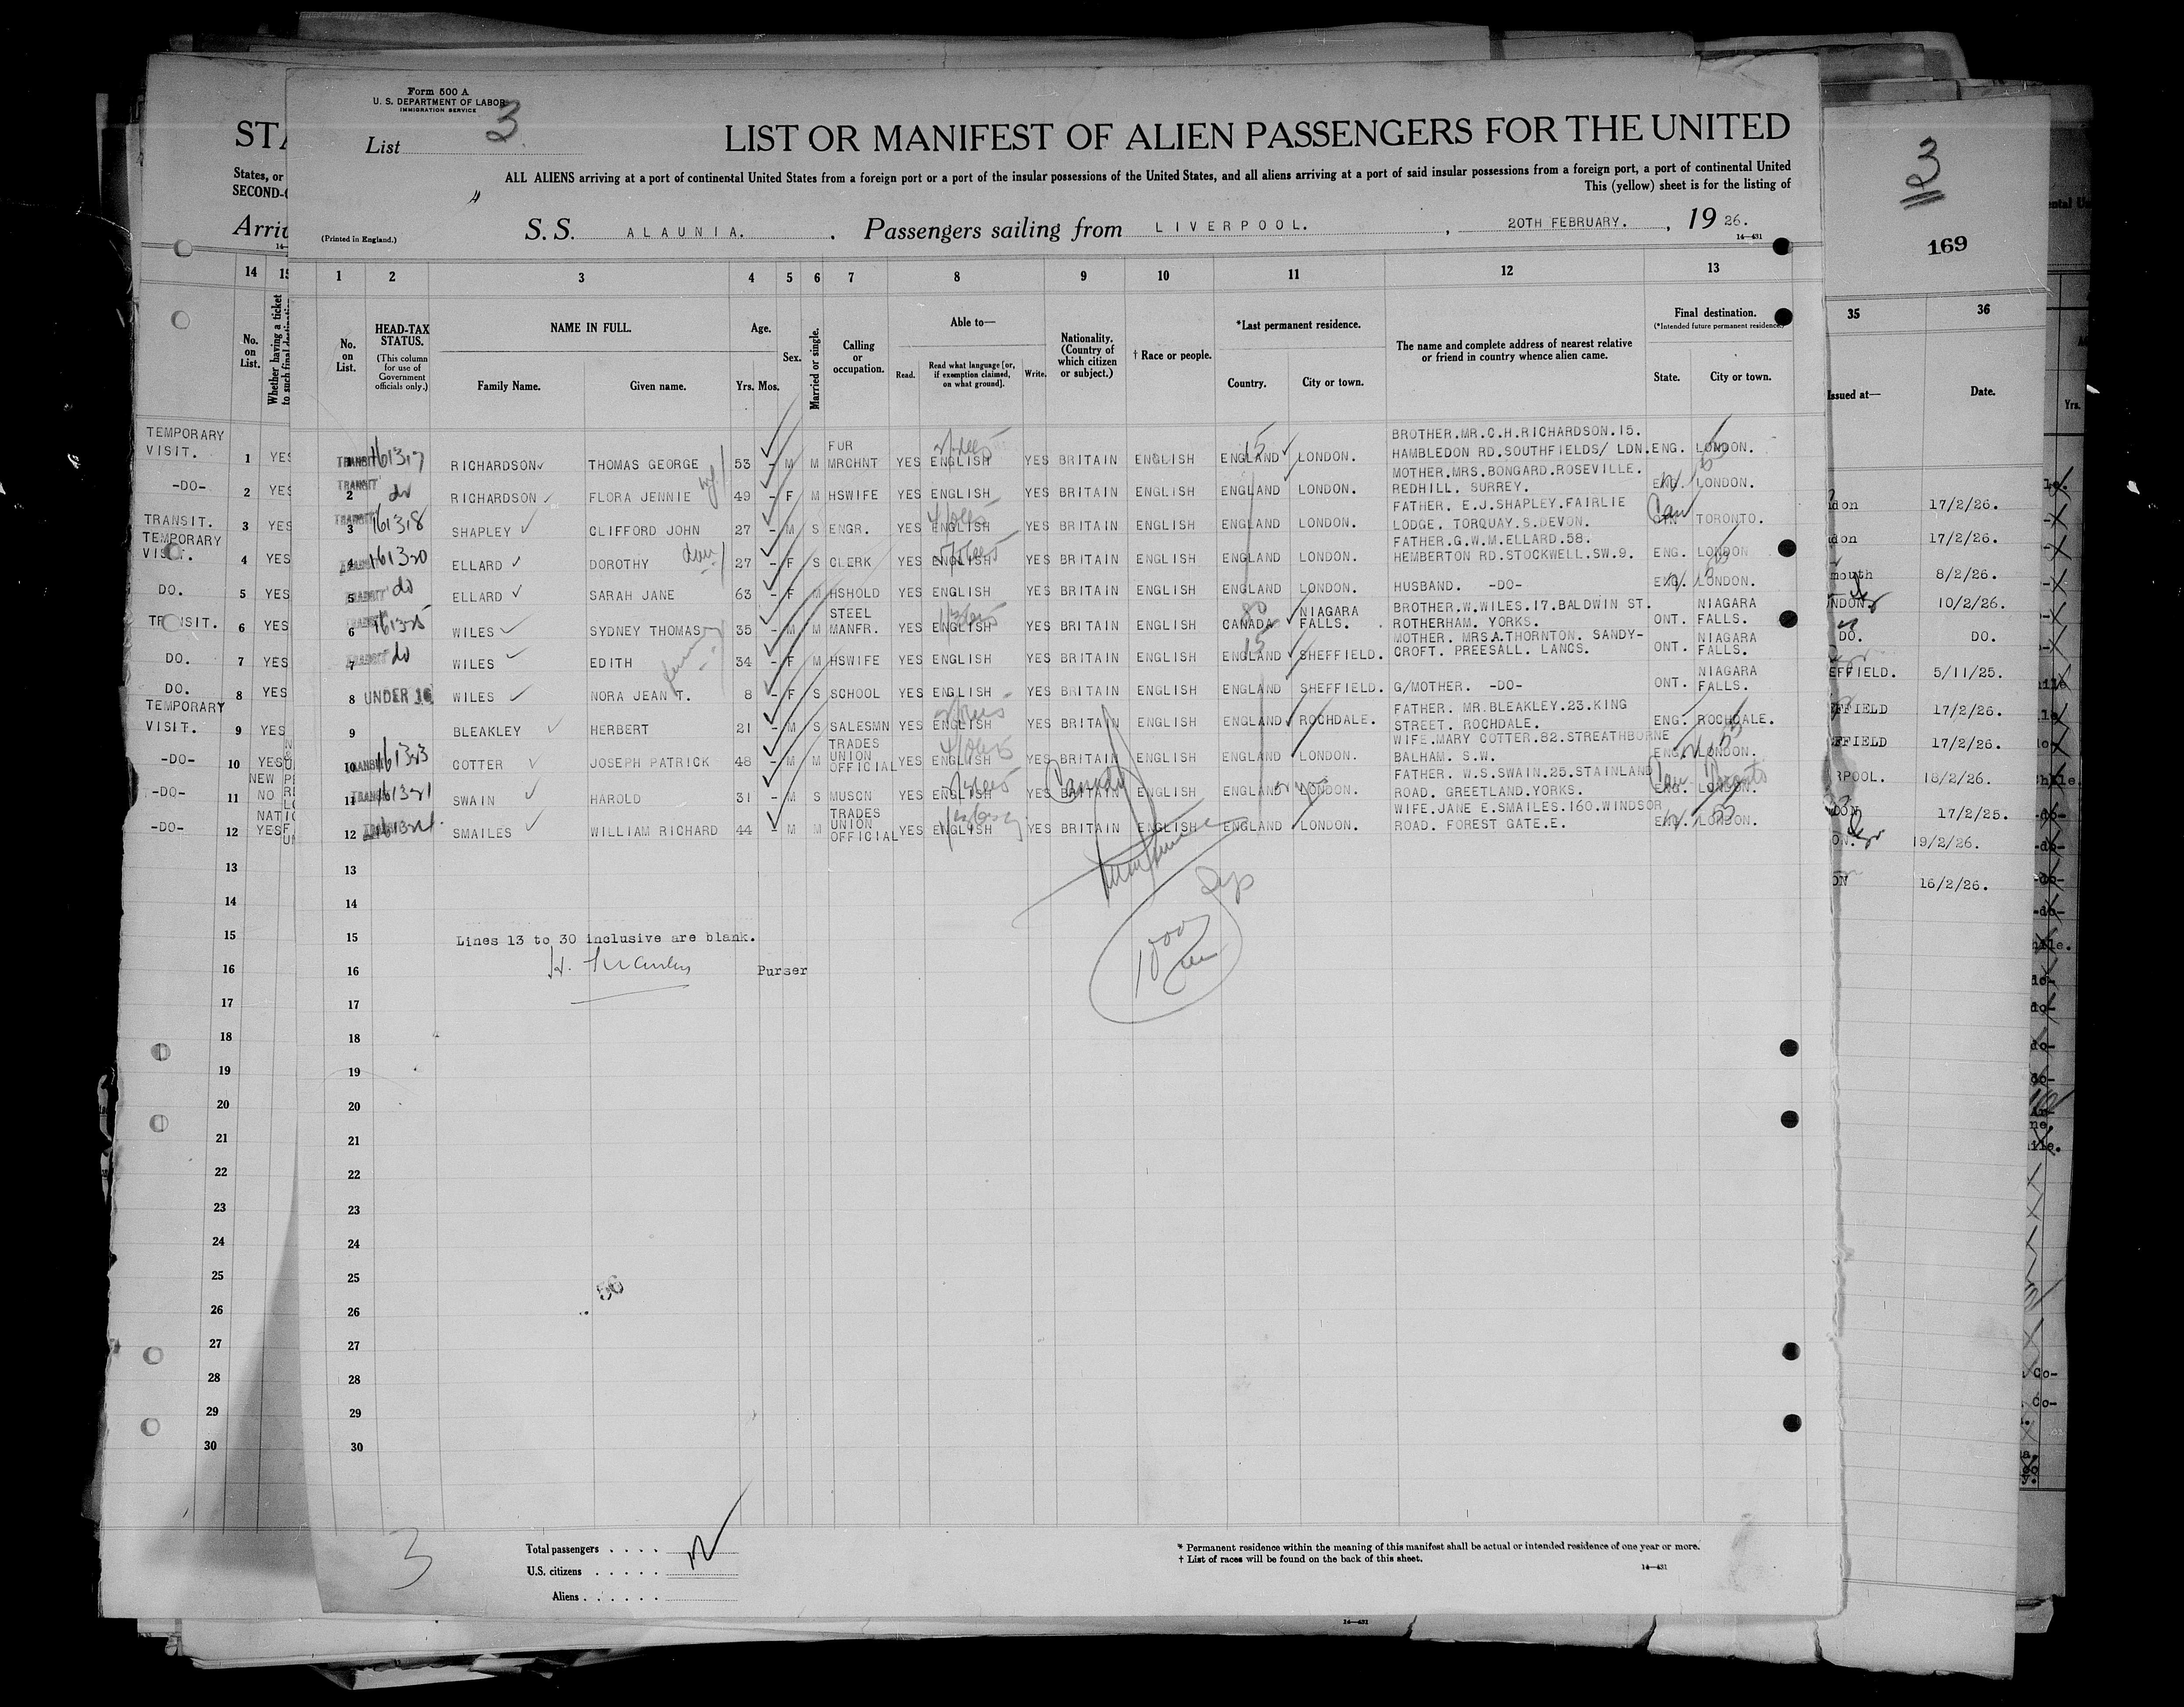 Form 500 A
U. S. DEPARTMENT OF LABOR
IMMIGRATION SERVICE
List 3
LIST OR MANIFEST OF ALIEN PASSENGERS FOR THE UNITED
ALL ALIENS arriving at a port of continental United States from a foreign port or a port of the insular possessions of the United States, and all aliens arriving at a port of said insular possessions from a foreign port, a port of continental United
This (yellow) sheet is for the listing of
(Printed in England.)
S. S. ALAUNIA. , Passengers sailing from LIVERPOOL. , 20TH FEBRUARY. , 19 26.
14—431
1 2 3 4 5 6 7 8 9 10 11 12 13
No. on List.
HEAD-TAX STATUS.
(This column for use of Government officials only.)
NAME IN FULL.
Family Name. Given name.
Age.
Yrs. Mos.
Sex.
Married or single.
Calling or occupation.
Able to—
Read. Read what language [or, if exemption claimed, on what ground]. Write.
Nationality. (Country of which citizen or subject.)
† Race or people.
*Last permanent residence.
Country. City or town.
The name and complete address of nearest relative or friend in country whence alien came.
Final destination.
(*Intended future permanent residence)
State. City or town.
TEMPORARY VISIT. 1 YES
1 TRANSIT 161317 RICHARDSON THOMAS GEORGE 53 - M M FUR MRCHNT YES ENGLISH YES BRITAIN ENGLISH ENGLAND LONDON. BROTHER.MR.C.H.RICHARDSON.15. HAMBLEDON RD.SOUTHFIELDS/ LDN. ENG. LONDON.
-DO- 2 YES
2 TRANSIT do RICHARDSON FLORA JENNIE wf 49 - F M HSWIFE YES ENGLISH YES BRITAIN ENGLISH ENGLAND LONDON. MOTHER.MRS.BONGARD.ROSEVILLE. REDHILL. SURREY. ENG. LONDON.
TRANSIT. 3 YES
3 TRANSIT 161318 SHAPLEY CLIFFORD JOHN 27 - M S ENGR. YES ENGLISH YES BRITAIN ENGLISH ENGLAND LONDON. FATHER. E.J.SHAPLEY.FAIRLIE LODGE. TORQUAY.S.DEVON. Can TORONTO.
TEMPORARY VISIT. 4 YES
4 161320 ELLARD DOROTHY 27 - F S CLERK YES ENGLISH YES BRITAIN ENGLISH ENGLAND LONDON. FATHER.G.W.M.ELLARD.58. HEMBERTON RD.STOCKWELL.SW.9. ENG. LONDON
DO. 5 YES
5 TRANSIT do ELLARD SARAH JANE 63 - F M HSHOLD YES ENGLISH YES BRITAIN ENGLISH ENGLAND LONDON. HUSBAND. -DO- ENG. LONDON.
TRANSIT. 6 YES
6 161325 WILES SYDNEY THOMAS 35 - M M STEEL MANFR. YES ENGLISH YES BRITAIN ENGLISH CANADA NIAGARA FALLS. BROTHER.W.WILES.17.BALDWIN ST. ROTHERHAM. YORKS. ONT. NIAGARA FALLS.
DO. 7 YES
7 TRANSIT do WILES EDITH 34 - F M HSWIFE YES ENGLISH YES BRITAIN ENGLISH ENGLAND SHEFFIELD. MOTHER. MRS A.THORNTON. SANDY- CROFT. PREESALL. LANCS. ONT. NIAGARA FALLS.
DO. 8 YES
8 UNDER 16 WILES NORA JEAN T. 8 - F S SCHOOL YES ENGLISH YES BRITAIN ENGLISH ENGLAND SHEFFIELD. G/MOTHER. -DO- ONT. NIAGARA FALLS.
TEMPORARY VISIT. 9 YES
9 BLEAKLEY HERBERT 21 - M S SALESMN YES ENGLISH YES BRITAIN ENGLISH ENGLAND ROCHDALE. FATHER. MR.BLEAKLEY.23.KING STREET. ROCHDALE. ENG. ROCHDALE.
-DO- 10 YES
10 TRANSIT 161323 COTTER JOSEPH PATRICK 48 - M M TRADES UNION OFFICIAL YES ENGLISH YES BRITAIN ENGLISH ENGLAND LONDON. WIFE.MARY COTTER.82.STREATHBORNE BALHAM. S.W. ENG. LONDON.
-DO- 11 NO
11 161321 SWAIN HAROLD 31 - M S MUSCN YES ENGLISH YES BRITAIN Canada ENGLISH ENGLAND LONDON. FATHER. W.S.SWAIN.25.STAINLAND ROAD. GREETLAND.YORKS. ENG. LONDON. Can Toronto
-DO- 12 YES
12 SMAILES WILLIAM RICHARD 44 - M M TRADES UNION OFFICIAL YES ENGLISH YES BRITAIN ENGLISH ENGLAND LONDON. WIFE.JANE E.SMAILES.160.WINDSOR ROAD. FOREST GATE.E. ENG. LONDON.
13
14
15 Lines 13 to 30 inclusive are blank.
16 Purser
17
18
19
20
21
22
23
24
25
26
27
28
29
30
1000
56
3
Total passengers
U.S. citizens
Aliens
* Permanent residence within the meaning of this manifest shall be actual or intended residence of one year or more.
† List of races will be found on the back of this sheet.
14—431
STA
States, or
SECOND-C
Arriv
14 15
No. on List.
Whether having a ticket to such final destination
3
169
35 36
Issued at— Date.
Yrs.
don 17/2/26.
don 17/2/26.
mouth 8/2/26.
NDON 10/2/26.
DO. DO.
EFFIELD. 5/11/25.
FFIELD 17/2/26.
FFIELD 17/2/26.
RPOOL. 18/2/26.
DON 17/2/25.
ON. 19/2/26.
ON 16/2/26.
14—431